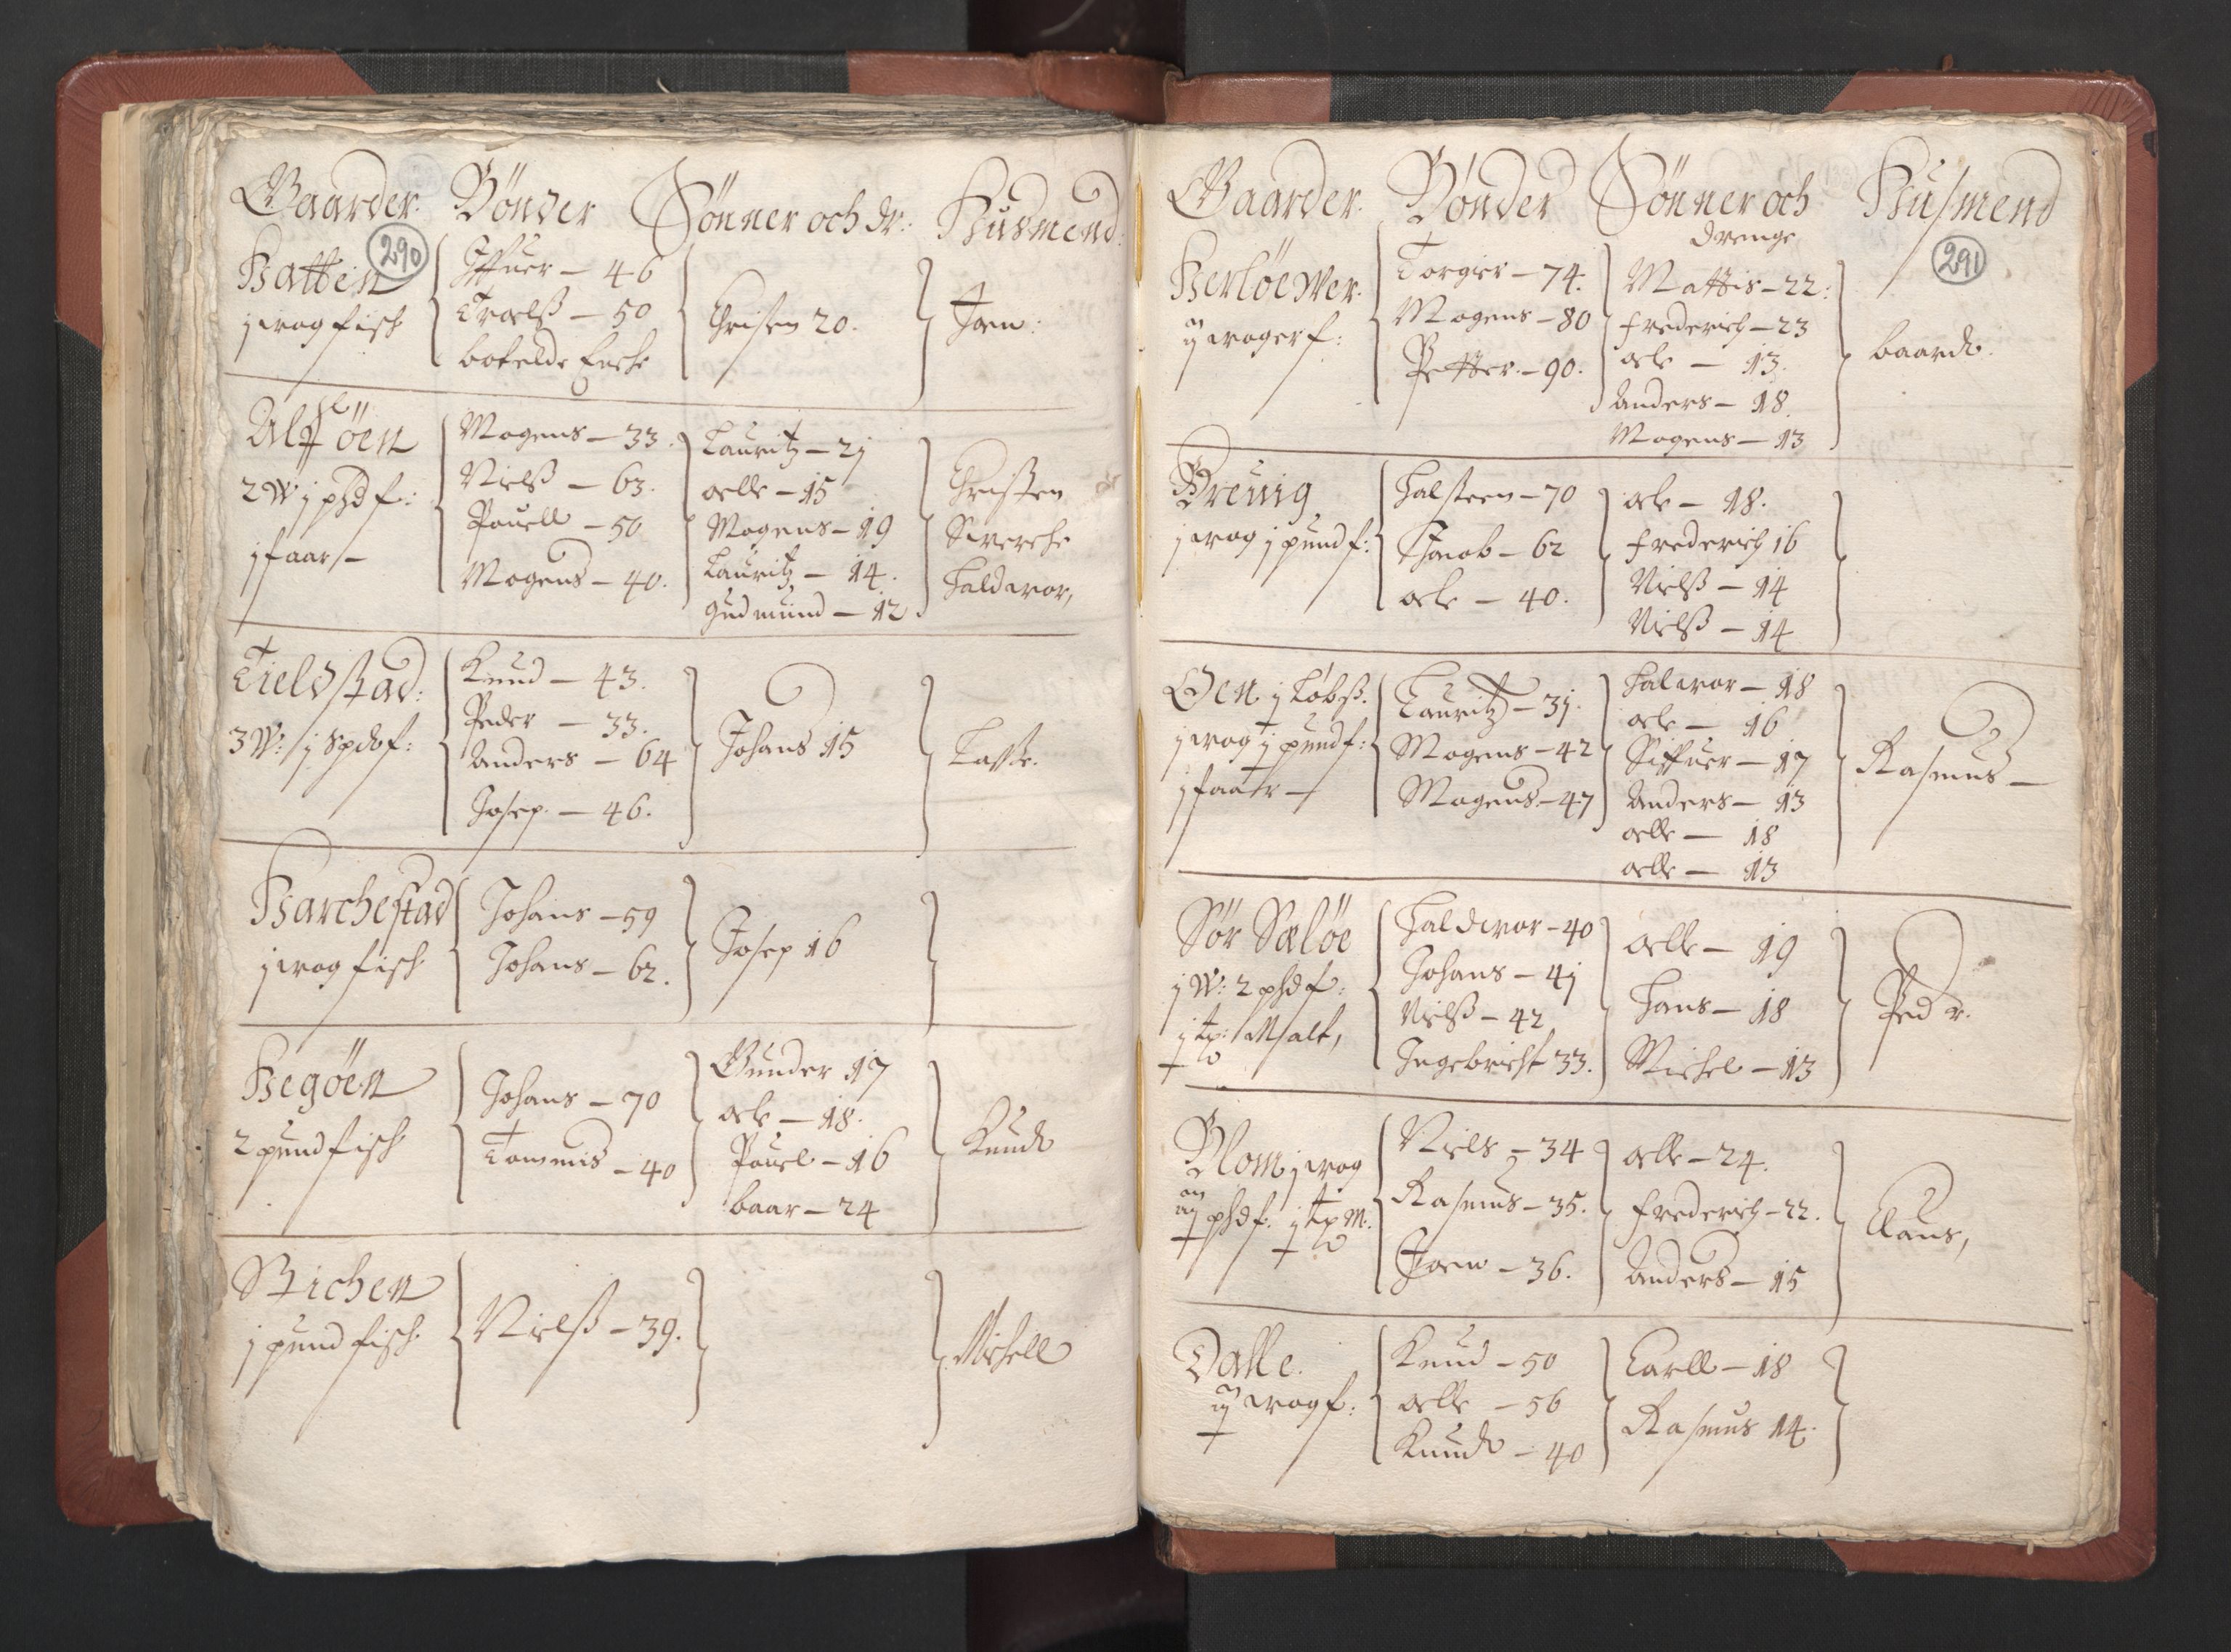 Gaarder. Bönder Sönner och dr: Husmend:
290
Hatten
j wog fisch
Iffuer – 46
Troelß – 50
botelde Enche
Christen 20.
Joen:
Alföen
2 W j phd f:
j faar –
Mogens – 33.
Nielß – 63.
Pouell – 50
Mogens – 40.
Lauritz – 2j
oelle – 15
Mogens – 19
Lauritz – 14.
Gudmund – 12
Christen
Siverche
Haldwor,
Tieldstad:
3 W: j spd f:
Knud – 43.
Peder – 33.
Anders – 64
Josep – 46.
Johans 15
Lasse.
Harchestad
j wog fisch
Johans – 59
Johans – 62.
Josep 16
Hegöen
2 pund fisch
Johans – 70
Tommis – 40
Gunder 17
oele – 18.
Pouel – 16
baar – 24
Knud
Stichen
j pund fisch
Nielß – 39.
Michell
Gaarder. Bönder Sönner och Husmend
drenge
291
Herlöewer.
ij woger f:
Torgier – 74.
Mogens – 80
Petter – 90.
Mattis – 22:
frederich – 23
oele – 13.
Anders – 18.
Mogens – 13
baard.
Breuig
j wog j pund f:
Halsteen – 70
Jacob – 62
oele – 40.
oele – 18.
frederich 16
Nielß – 14
Nielß – 14
Oen j Löbß.
j wog j pund f:
j faar –
Lauritz – 3j.
Mogens – 42
Mogens – 47
Halwor – 18
oele – 16
Siffuer – 17
Anders – 13
oelle – 18
oelle – 13
Rasmus –
Sör Sælöe
j W: 2 phd f:
j tp: Malt,
Haldwor – 40
Johans – 4j
Nielß – 42
Ingebricht 33.
oelle – 19
Hans – 18
Michel – 13
Peder.
Blom j wog
ij phd f. j tp M.
Niels – 34
Rasmus – 35.
Joen – 36.
oelle – 24.
frederich – 22.
Anders – 15
Claus,
Dalle.
ij wog f:
Knud – 50
oelle – 56
Knud – 40
Carll – 18
Rasmus 14.